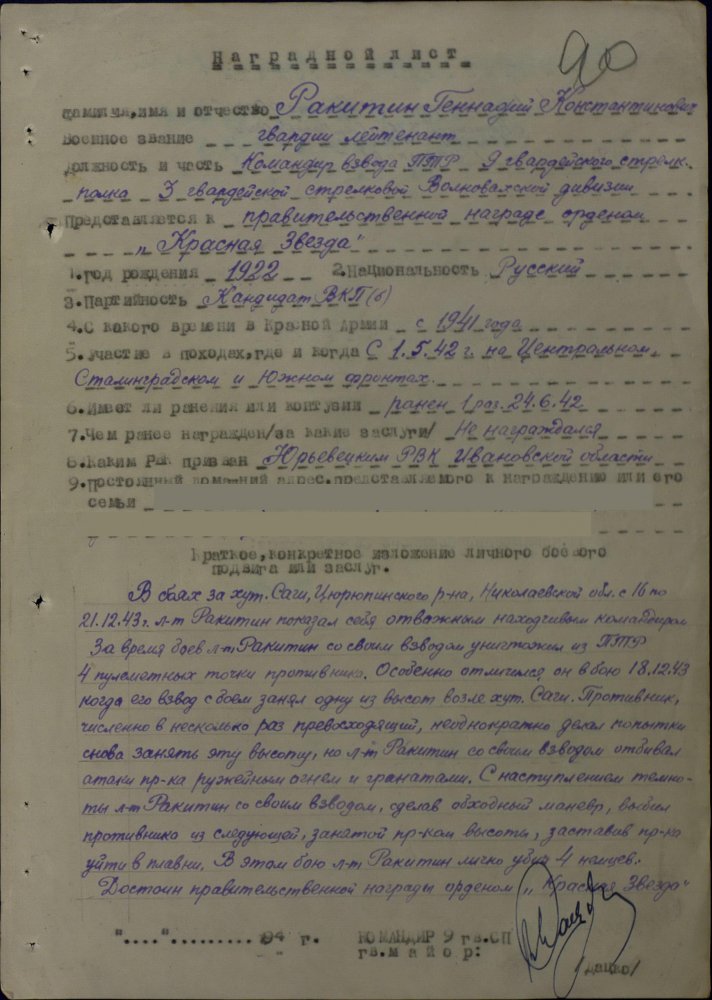 Наградной лист
90
фамилия, имя и отчество Ракитин Геннадий Константинович
Военное звание гвардии лейтенант
Должность и часть Командир взвода ПТР 9 гвардейского стрелк.
полка 3 гвардейской стрелковой Волновахской дивизии
Представляется к правительственной награде орденом
„Красная Звезда"
1. год рождения 1922 2. Национальность Русский
3. Партийность Кандидат ВКП(б)
4. С какого времени в Красной Армии с 1941 года
5. Участие в походах, где и когда С 1.5.42 г. на Центральном,
Сталинградском и Южном фронтах.
6. Имеет ли ранения или контузии ранен 1 раз. 24.6.42
7. Чем ранее награжден/за какие заслуги/ Не награждался
8. Каким РВК призван Юрьевецким РВК Ивановской области
9. Постоянный домашний адрес. представляемого к награждению или его
семьи
Краткое, конкретное изложение личного боевого
подвига или заслуг.
В боях за хут. Саги, Цюрюпинского р-на, Николаевской обл. с 16 по
21.12.43 г. л-т Ракитин показал себя отважным находчивым командиром
За время боев л-т Ракитин со своим взводом уничтожил из ПТР
4 пулеметных точки противника. Особенно отличился он в бою 18.12.43
когда его взвод с боем занял одну из высот возле хут. Саги. Противник,
численно в несколько раз превосходящий, неоднократно делал попытки
снова занять эту высоту, но л-т Ракитин со своим взводом отбивал
атаки пр-ка ружейным огнем и гранатами. С наступлением темно-
ты л-т Ракитин со своим взводом, сделав обходный маневр, выбил
противника из следующей, занятой пр-ком высоты, заставив пр-ка
уйти в плавни. В этом бою л-т Ракитин лично убил 4 немцев.
Достоин правительственной награды орденом „Красная Звезда"
"...."......... 194 г. КОМАНДИР 9 гв.СП
гв.майор:
/Дацко/